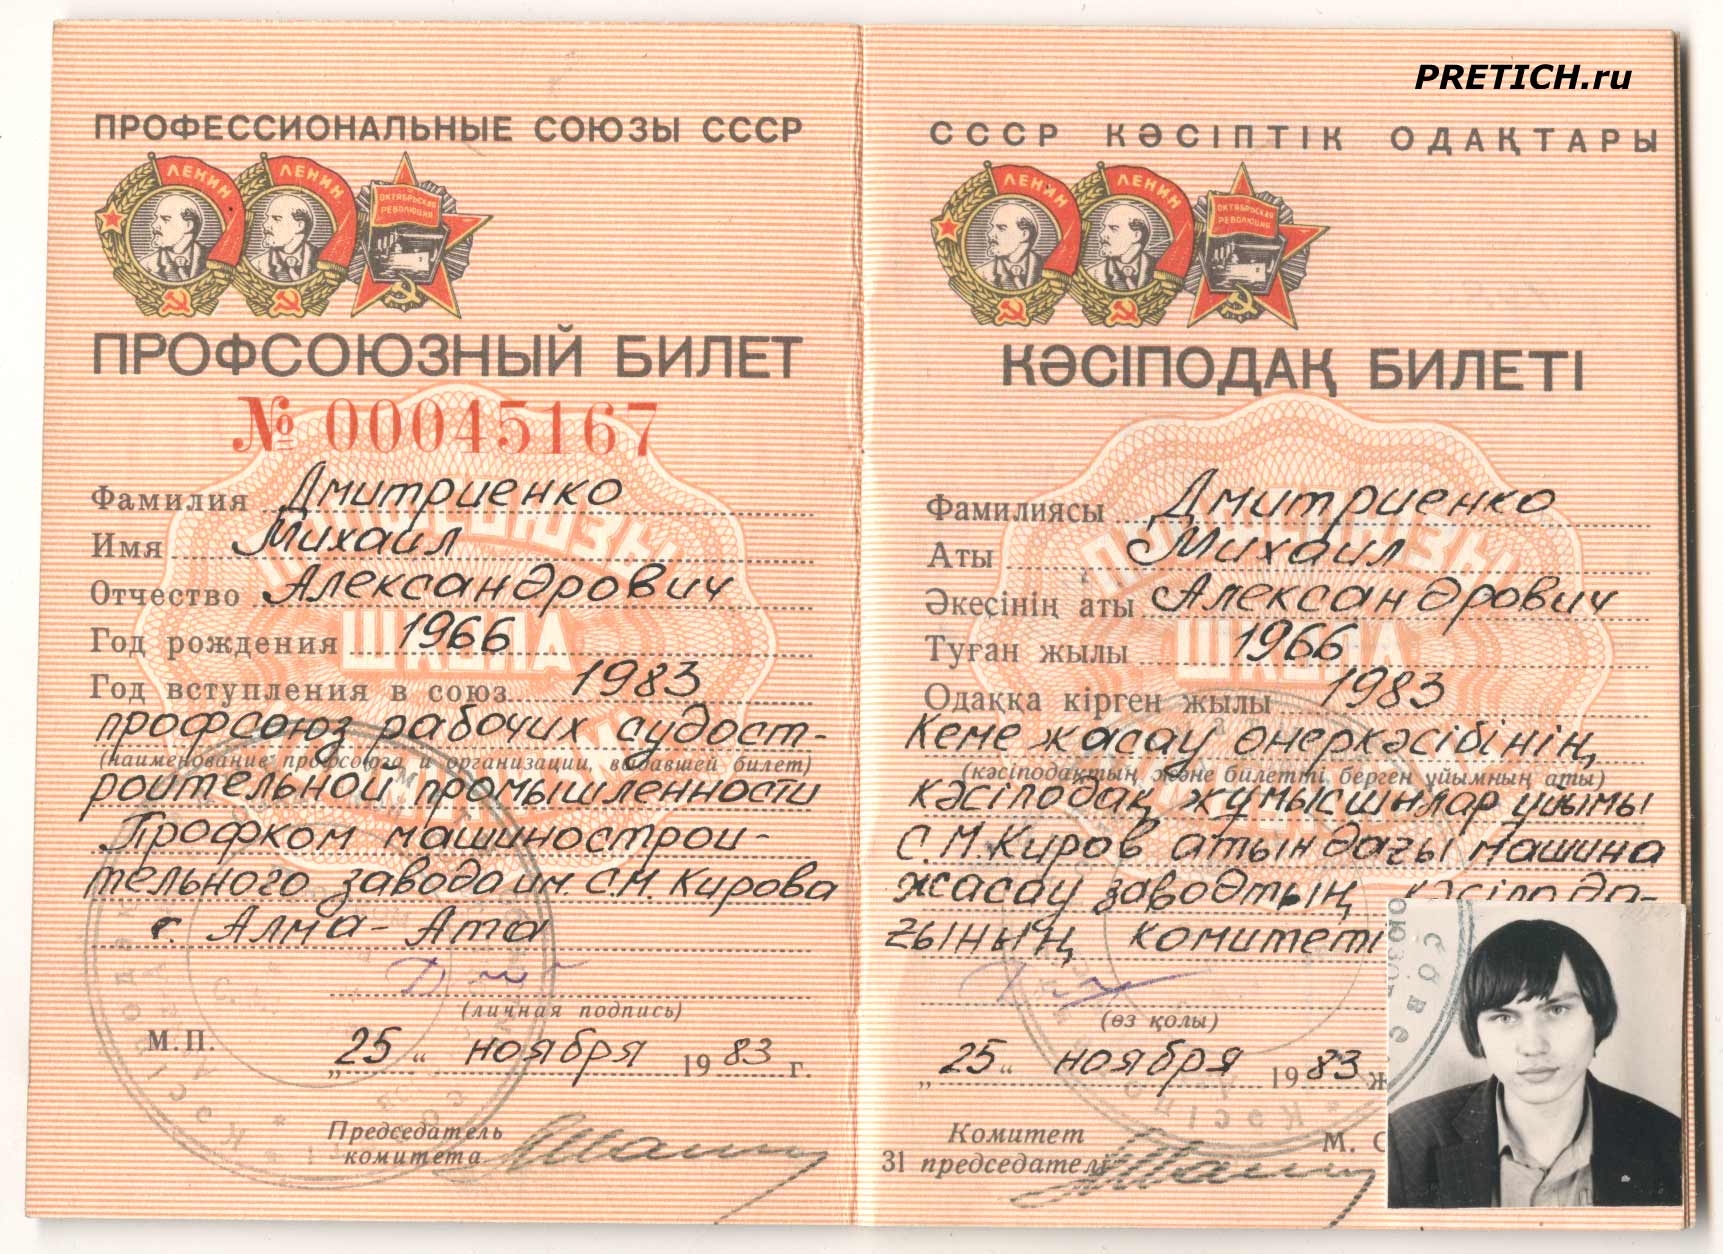 PRETICH.ru
ПРОФЕССИОНАЛЬНЫЕ СОЮЗЫ СССР
ЛЕНИН
ЛЕНИН
ОКТЯБРЬСКАЯ
РЕВОЛЮЦИЯ
ПРОФСОЮЗНЫЙ БИЛЕТ
№ 00045167
Фамилия Дмитриенко
Имя Михаил
Отчество Александрович
Год рождения 1966
Год вступления в союз 1983
профсоюз рабочих судост-
(наименование профсоюза и организации, выдавшей билет)
роительной промышленности
Профком машинострои-
тельного завода им. С.М. Кирова
г. Алма-Ата
(личная подпись)
М.П.
„25“ ноября 1983 г.
Председатель
комитета
СССР КӘСІПТІК ОДАҚТАРЫ
ЛЕНИН
ЛЕНИН
ОКТЯБРЬСКАЯ
РЕВОЛЮЦИЯ
КӘСІПОДАҚ БИЛЕТІ
Фамилиясы Дмитриенко
Аты Михаил
Әкесінің аты Александрович
Туған жылы 1966
Одаққа кірген жылы 1983
Кеме жасау өнеркәсібінің
(кәсіподақтың және билетті берген ұйымның аты)
кәсіподақ жұмысшылар ұйымы
С.М.Киров атындағы машина
жасау заводтың кәсіпода-
ғының комитеті
(өз қолы)
„25“ ноября 1983 ж
Комитет
М. О
31 председателі
ПРОФСОЮЗЫ
ШКОЛА
ПРОФСОЮЗЫ
ШКОЛА